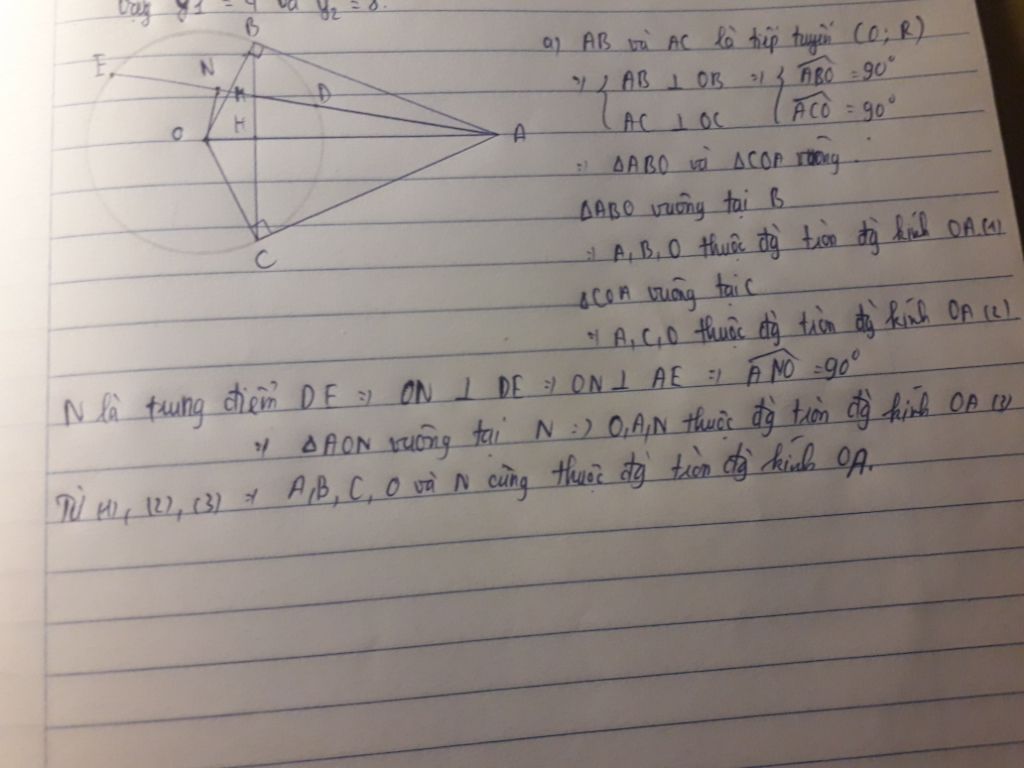 Vậy y1 = 4 và y2 = 8.
B
E
N
M
D
O
H
A
C
a) AB và AC là tiếp tuyến (O; R)
=> { AB ⊥ OB => { ABO = 90°
AC ⊥ OC ACO = 90°
=> ΔABO và ΔCOA vuông.
ΔABO vuông tại B
=> A, B, O thuộc đg tròn đg kính OA (1)
ΔCOA vuông tại C
=> A, C, O thuộc đg tròn đg kính OA (2)
N là trung điểm DE => ON ⊥ DE => ON ⊥ AE => ANO = 90°
=> ΔAON vuông tại N => O, A, N thuộc đg tròn đg kính OA (3)
Từ (1), (2), (3) => A, B, C, O và N cùng thuộc đg tròn đg kính OA.